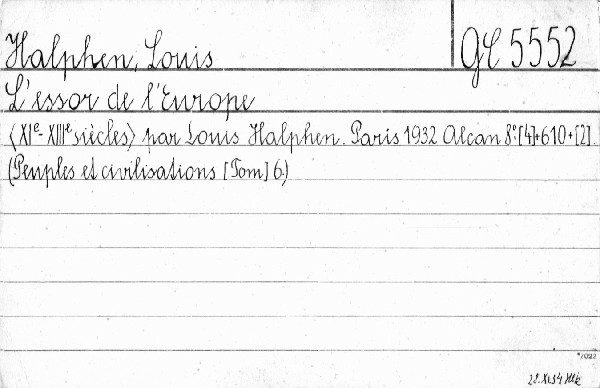 Halphen, Louis
GC 5552
L'essor de l'Europe
<XIe-XIIIe siècles> par Louis Halphen. Paris 1932 Alcan 8°.[4]+610+[2].
(Peuples et civilisations [Tom] 6.)
*/022